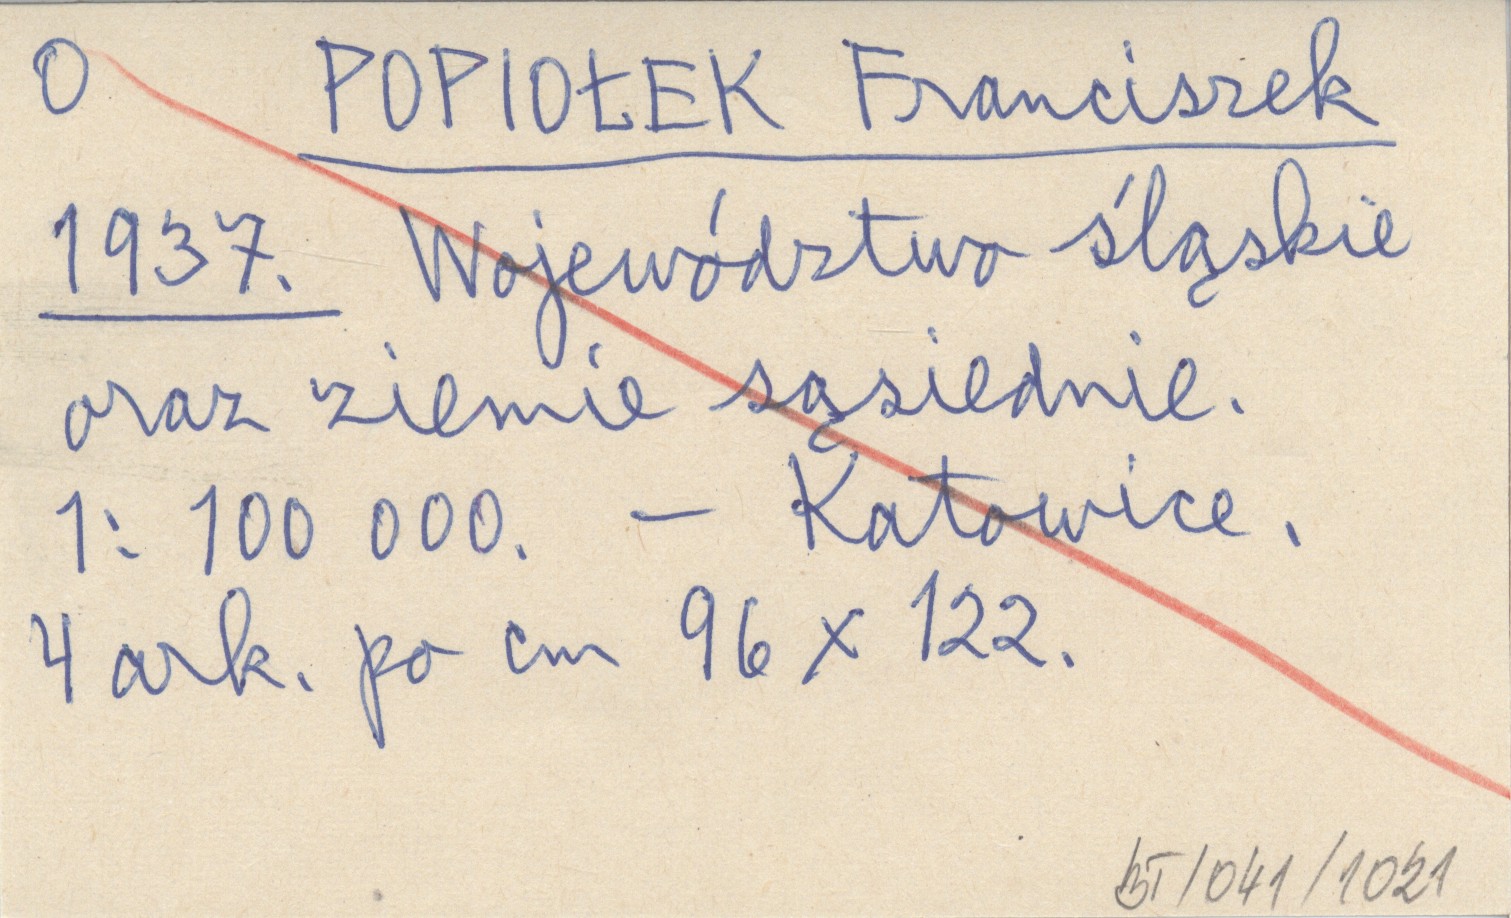 O POPIOŁEK Franciszek
1937. Województwo śląskie
oraz ziemie sąsiednie.
1: 100 000. — Katowice.
4 ark. po cm 96 x 122.
BT/041/1021